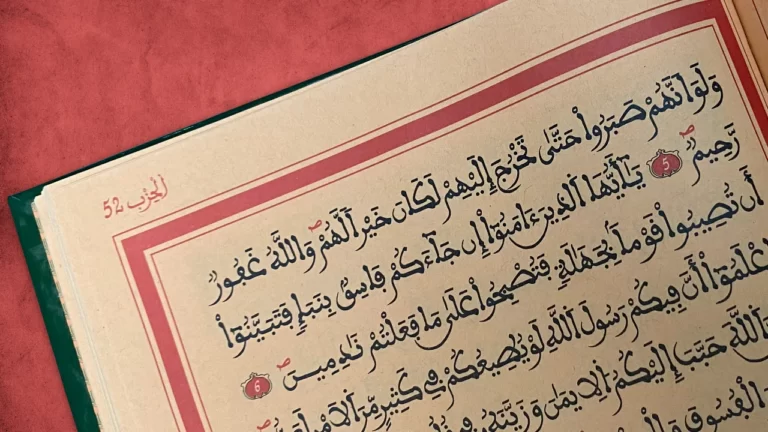 الحزب 52
وَلَوَ اَنَّهُمْ صَبَرُواْ حَتَّىٰ تَخْرُجَ إِلَيْهِمْ لَكَانَ خَيْراٗ لَّهُمْۖ وَاللَّهُ غَفُورٞ
رَّحِيمٞۖ 5 يَٰٓأَيُّهَا اَلذِينَ ءَامَنُوٓاْ إِن جَآءَكُمْ فَاسِقُۢ بِنَبَإٖ فَتَبَيَّنُوٓاْ
أَن تُصِيبُواْ قَوْماَۢ بِجَهَٰلَةٖ فَتُصْبِحُواْ عَلَىٰ مَا فَعَلْتُمْ نَٰدِمِينَۖ 6
اعْلَمُوٓاْ أَنَّ فِيكُمْ رَسُولَ اَللَّهِ لَوْ يُطِيعُكُمْ فِي كَثِيرٖ مِّنَ اَلَامْرِ
اللَّهَ حَبَّبَ إِلَيْكُمُ اَلِايمَٰنَ وَزَيَّنَهُۥ فِي
الْفُسُوقَ